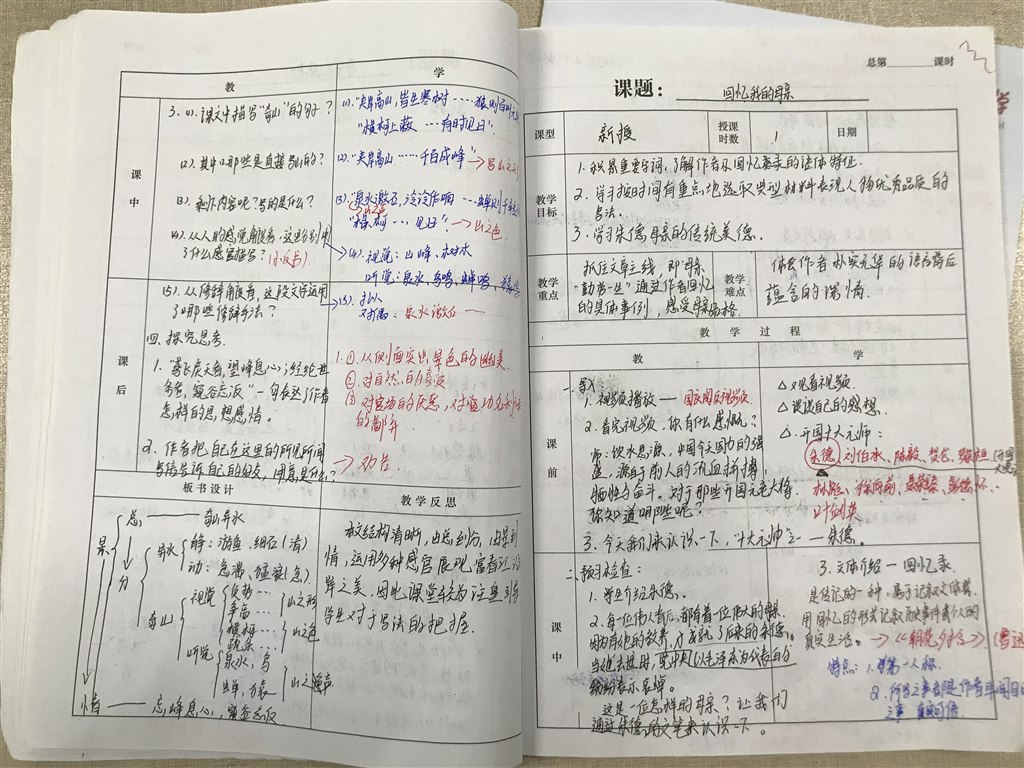 教
学
课中
3、(1). 课文中描写"奇山"的句子？
(1). "夹岸高山，皆生寒树……猿则百叫无
"横柯上蔽……有时见日".
(2). 其中哪些是直接写山的？
(2). "夹岸高山……千百成峰" → 写山之形
(3). 剩下内容呢？写的是什么？
(3). "泉水激石，泠泠作响……蝉则千转
"横柯……见日". → 山之色.
(4). 从人的感觉角度看，这里分别
了什么感官描写？
(4). 视觉：山峰、树木
听觉：泉水、鸟鸣、蝉鸣、猿
(5). 从修辞角度看，这段文字运用
了哪些修辞手法？
(5).
对偶：泉水激石——
课后
四、探究思考.
1. "鸢飞戾天者，望峰息心；经纶世
务者，窥谷忘返"一句表达了作者
怎样的思想感情。
1. ① 从侧面突出景色的优美
② 对自然的喜爱
③ 对官场的厌恶，对追功名利
的鄙弃
2. 作者把自己在这里的所见所闻
写信告诉自己的好友，用意是什么？
→ 劝告
板书设计
教学反思
总 —— 奇山异水
景
分
异水
静：游鱼、细石（清）
动：急湍、猛浪（急）
奇山
视觉
争高…
横柯…
疏条…
山之形
山之色
听觉
泉水、鸟
蝉、猿
山之声
情 —— 望峰息心，窥谷忘返
本文结构清晰，由总到分，由景到
情，运用多种感官展现富春江沿
岸之美，因此课堂中应注意引导
学生对于写法的把握.
总第 课时
课题： 回忆我的母亲
课型 新授 授课时数 1 日期
教学目标
1. 积累重要字词，了解作者及回忆录的语体特征.
2. 学习按时间有重点地选取典型材料表现人物优秀品质的
写法.
3. 学习朱德母亲的传统美德.
教学重点
抓住文章主线，即母亲
"勤劳一生"通过作者回忆
的具体事例，感受母亲品格.
教学难点
体会作者朴实无华的语言背后
蕴含的深情.
教学过程
教
学
课前
一、导入
1. 视频播放 —— 国庆阅兵视频
2. 看完视频，你有什么感慨？
师：饮水思源，中国今天国力的强
盛，源自于前人的流血拼搏，
牺牲与奋斗。对于那些开国元老大将，
你知道哪些呢？
3. 今天我们来认识一下，"十大元帅"之一 —— 朱德。
△ 观看视频
△ 谈谈自己的感想
△ 开国十大元帅：
朱德、刘伯承、陈毅、贺龙、罗荣桓
林彪、徐向前、聂荣臻、彭德怀、
叶剑英
课中
二、预习检查：
1. 学生介绍朱德；
2. 每一位伟人背后，都有着一位伟大的母亲
因为有她的教养，才成就了后来的朱德。
当她去世时，以毛泽东为代表的
纷纷表示哀悼。
这是一位怎样的母亲？让我们
通过朱德的文笔来认识一下。
3. 文体介绍 — 回忆录.
是传记的一种，属于记叙文体裁.
用回忆的形式记叙历史事件或个人的
真实生活。→《朝花夕拾》（鲁迅
特点：1. 第一人称.
2. 所写之事都是作者耳闻目
之事 真实可信